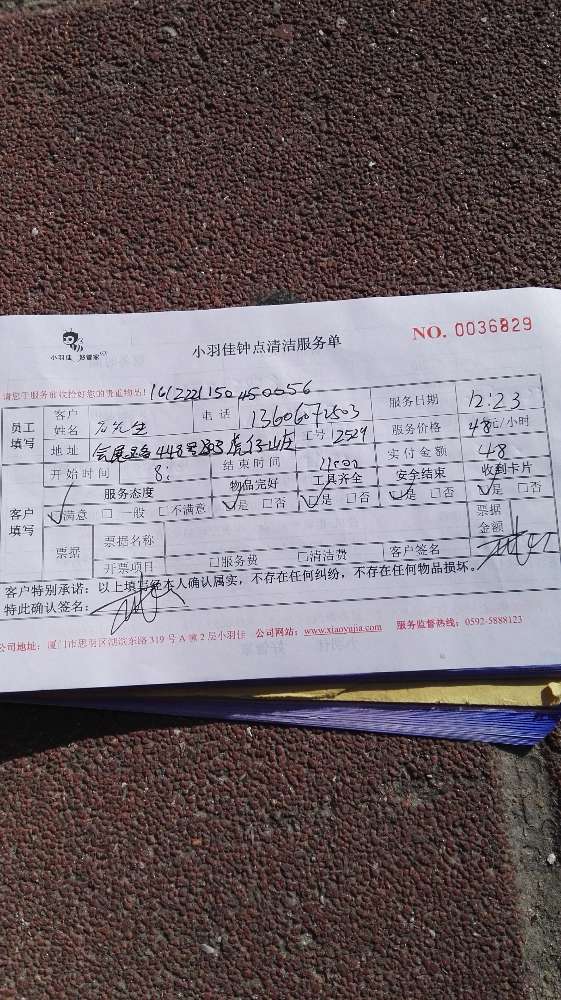 小羽佳 好管家
小羽佳钟点清洁服务单
NO. 0036829
请您于服务前收拾好您的贵重物品!
员工填写
客户姓名 先生 电话 13606072503 服务日期 12:23
地址 448号 虎仔山庄 工号 12529 服务价格 48元/小时
客户填写
开始时间 8: 结束时间 11:00 实付金额 48
服务态度 物品完好 工具齐全 安全结束 收到卡片
☑满意 □一般 □不满意 ☑是 □否 ☑是 □否 ☑是 □否 ☑是 □否
票据 票据名称 票据金额
开票项目 □服务费 □清洁费 客户签名
客户特别承诺:以上填写经本人确认属实,不存在任何纠纷,不存在任何物品损坏。
特此确认签名:
公司地址:厦门市思明区湖滨东路319号A幢2层小羽佳 公司网站:www.xiaoyujia.com 服务监督热线:0592-5888123